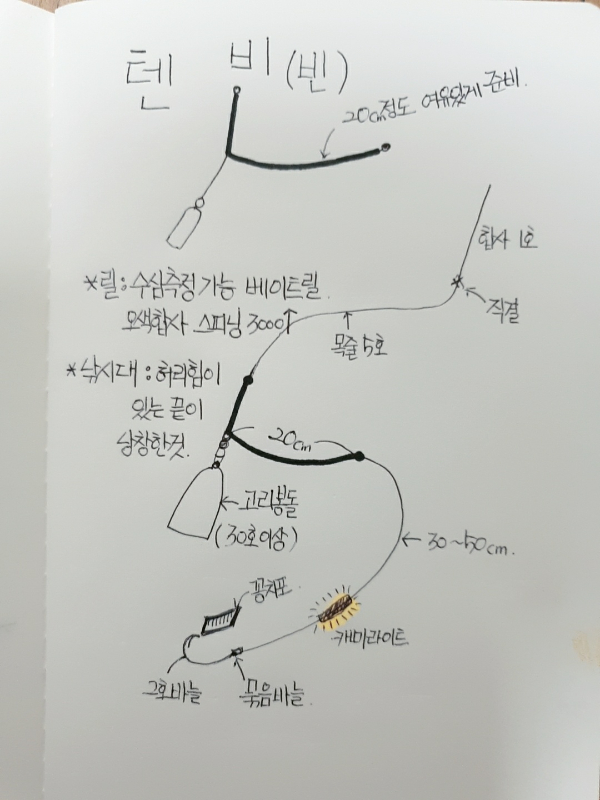 텐 비 (빈)
20cm정도 여유있게 준비.
합사 1호
*릴: 수심측정 가능 베이트릴.
오색합사 스피닝 3000↑
직결
목줄 5호
*낚시대 : 허리힘이
있는 끝이
상창한것.
20cm
고리봉돌
(30호이상)
30~50cm.
꽁치포.
캐미라이트
묶음바늘.